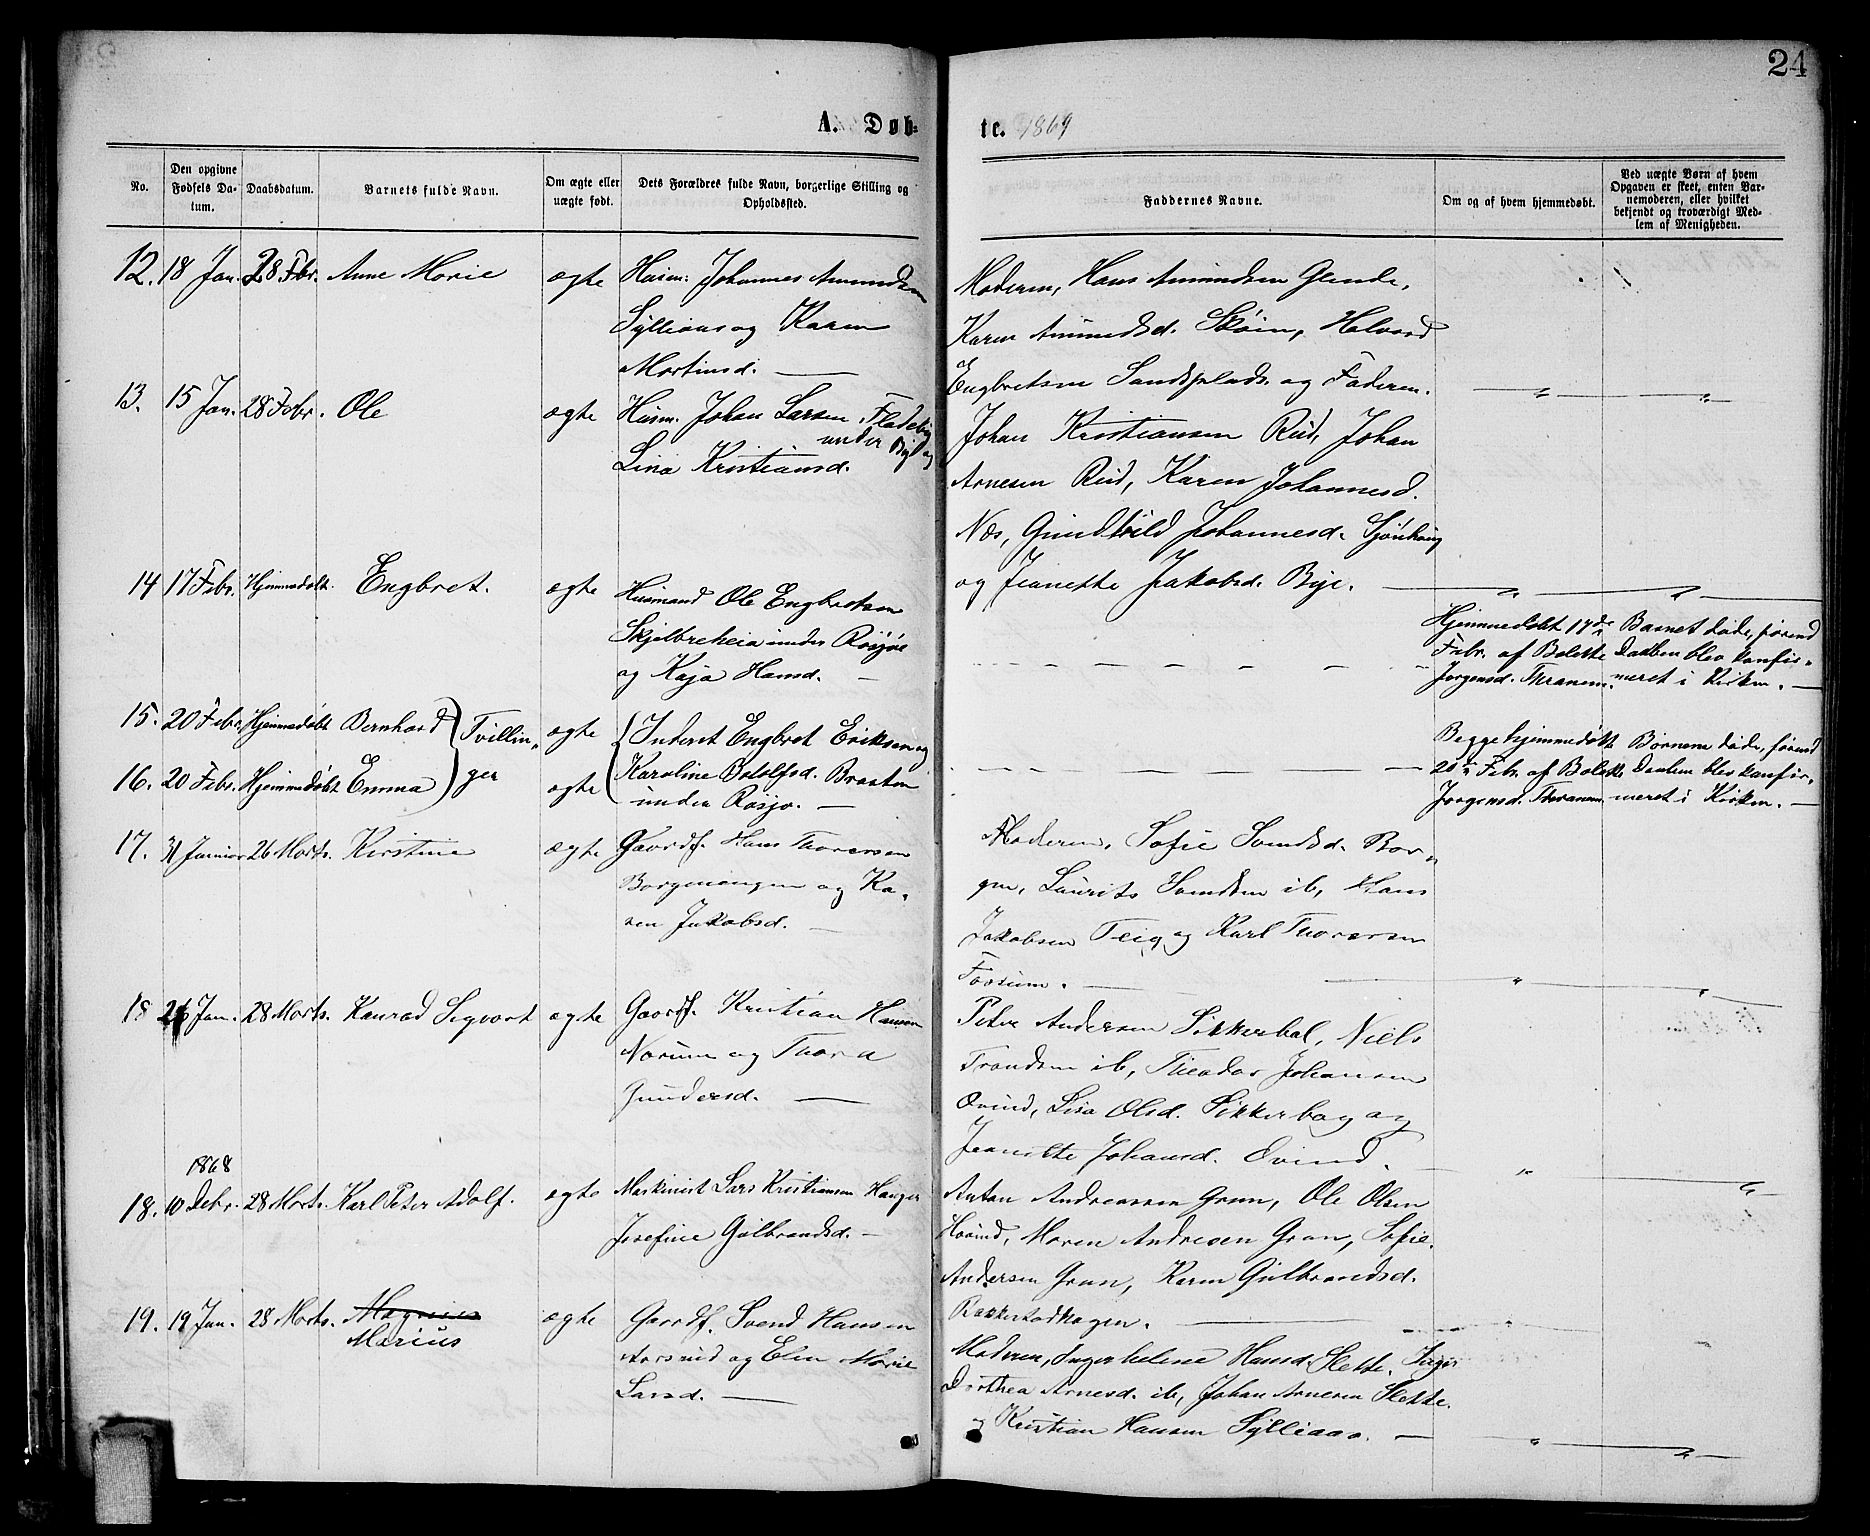 24
A. Døb-
te. 1869
No.
Den opgivne Fødsels Datum.
Daabsdatum.
Barnets fulde Navn.
Om ægte eller uægte født.
Dets Forældres fulde Navn, borgerlige Stilling og Opholdssted.
Faddernes Navne.
Om og af hvem hjemmedøbt.
Ved uægte Børn af hvem Opgaven er skeet, enten Barnemoderen, eller hvilket bekjendt og troværdigt Medlem af Menigheden.
12. 18 Jan. 28 Fbr. Anne Marie ægte Husm: Johannes Amundsen
Sylliaas og Karen
Martinsd. —
Moderen, Hans Amundsen Glende,
Karen Amundsd. Skøien, Halvord
Engbretsen Sandsplads. og Faderen.
13. 15 Jan. 28 Febr. Ole ægte Husm. Johan Larsen, Fladeby
under Bye og
Lina Kristiansd.
Johan Kristiansen Rud, Johan
Arnesen Rud, Karen Johannesd.
Næs, Gundhild Johannesd. Sjønhaug
og Jeanette Jakobsd. Bye. —
14 17 Febr. Hjemmedøbt. Engbret. ægte Husmand Ole Engbretsen
Skjølbreheia under Røsjøe
og Kaja Hansd. —
Hjemmedøbt 17de
Febr. af Bolette
Jørgensd. Thranem.
Barnet døde, førend
Daaben blev konfir-
meret i Kirken. —
15. 20 Febr. Hjemmedøbt Bernhard Tvillin- ægte Inderst Engbret Eriksen og
16. 20 Febr. Hjemmedøbt Emma ger ægte Karoline Botolfsd. Braaten
under Røsjø. —
Begge hjemmedøbt
20de Febr. af Bolette
Jørgensd. Thranem.
Børnene døde, førend
Daaben blev konfir-
meret i Kirken. —
17. 31 Januar 26 Marts. Kirstine ægte Gaardf. Hans Thoresen
Borgenengen og Ka-
ren Jakobsd. —
Moderen, Sofie Svendsd. Bor-
gen, Laurits Svendsen ib, Hans
Jakobsen Teig og Karl Thoresen
Fossum. —
18 26 Jan. 28 Marts. Konrad Sigvart ægte Gaardf. Kristian Hansen
Norum og Thora
Gundersd. —
Peter Andersen Sikkerbøl, Niels
Trondsen ib, Theodor Johansen
Øvind, Lisa Olsd. Sikkerbøg og
Jeanette Johansd. Øvind. —
1868
18. 10 Debr. 28 Marts. Karl Peter Adolf. ægte Maskinist Lars Kristiansen Hauger
Josefine Gulbrandsd. —
Anton Andreassen Gran, Ole Olsen
Hovind, Maren Andresen Gran, Sofie
Andersen Gran, Karen Gulbrandsd.
Rakkestadhagen. —
19. 19 Jan. 28 Marts. Magnus
Marius
ægte Gaardf. Svend Hansen
Aarsrud og Elen Marie
Larsd. —
Moderen, Ingerhelene Hansd. Slette, Inger
Dorthea Arnesd. ib, Johan Arnesen Slette.
og Kristian Hansen Sylliaas. —